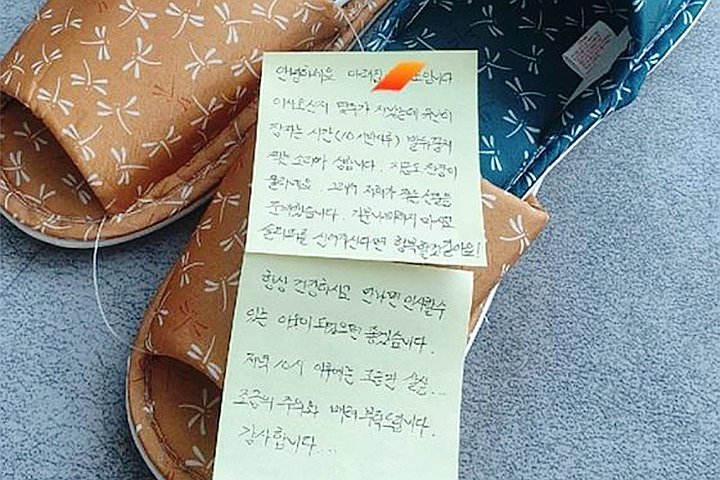 안녕하세요 아래집 입니다
이사오신지 몇주가 지났는데 유난히
잠자는 시간(10시반이후) 발뒤꿈치
찍는 소리가 심합니다. 지금도 천장이
울리네요. 그래서 저희가 작은 선물을
준비했습니다. 기분나빠하지 마시고
슬리퍼를 신어주신다면 행복할것같아요!
항상 건강하시고 만나면 인사할수
있는 이웃이 되었으면 좋겠습니다.
저녁 10시 이후에는 조금만 살살...
조금의 주의와 배려 부탁드립니다.
감사합니다...